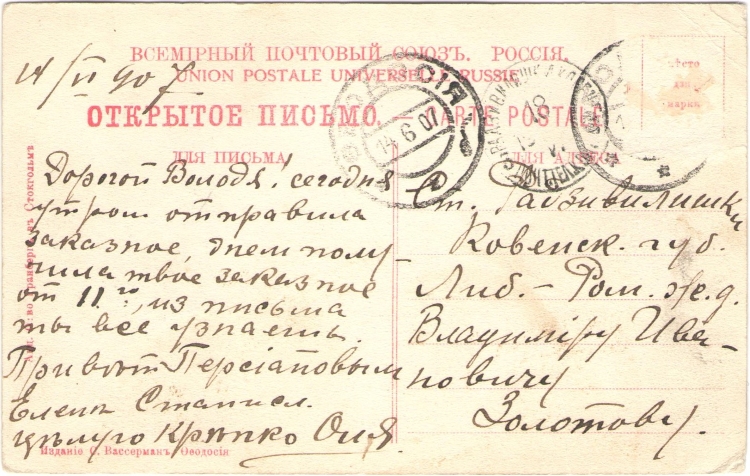 ВСЕМІРНЫЙ ПОЧТОВЫЙ СОЮЗЪ. РОССІЯ.
UNION POSTALE UNIVERSELLE. RUSSIE
ОТКРЫТОЕ ПИСЬМО. — CARTE POSTALE
ДЛЯ ПИСЬМА
ДЛЯ АДРЕСА
Мѣсто
для
марки
14 6 07
18
Дорогой Володя! сегодня
утром отправила
заказное, днем полу-
чила твое заказное
от 11го, из письма
ты все узнаешь.
Привѣт Персіановым
Елена Станисл.
цѣлую крѣпко Оля
ст. Радзивилишки
Ковенск. губ.
Либ.-Ром. ж. д.
Владиміру Ива-
новичу
Золотову.
въ Стокгольмѣ
Изданіе С. Вассерманъ, Ѳеодосія